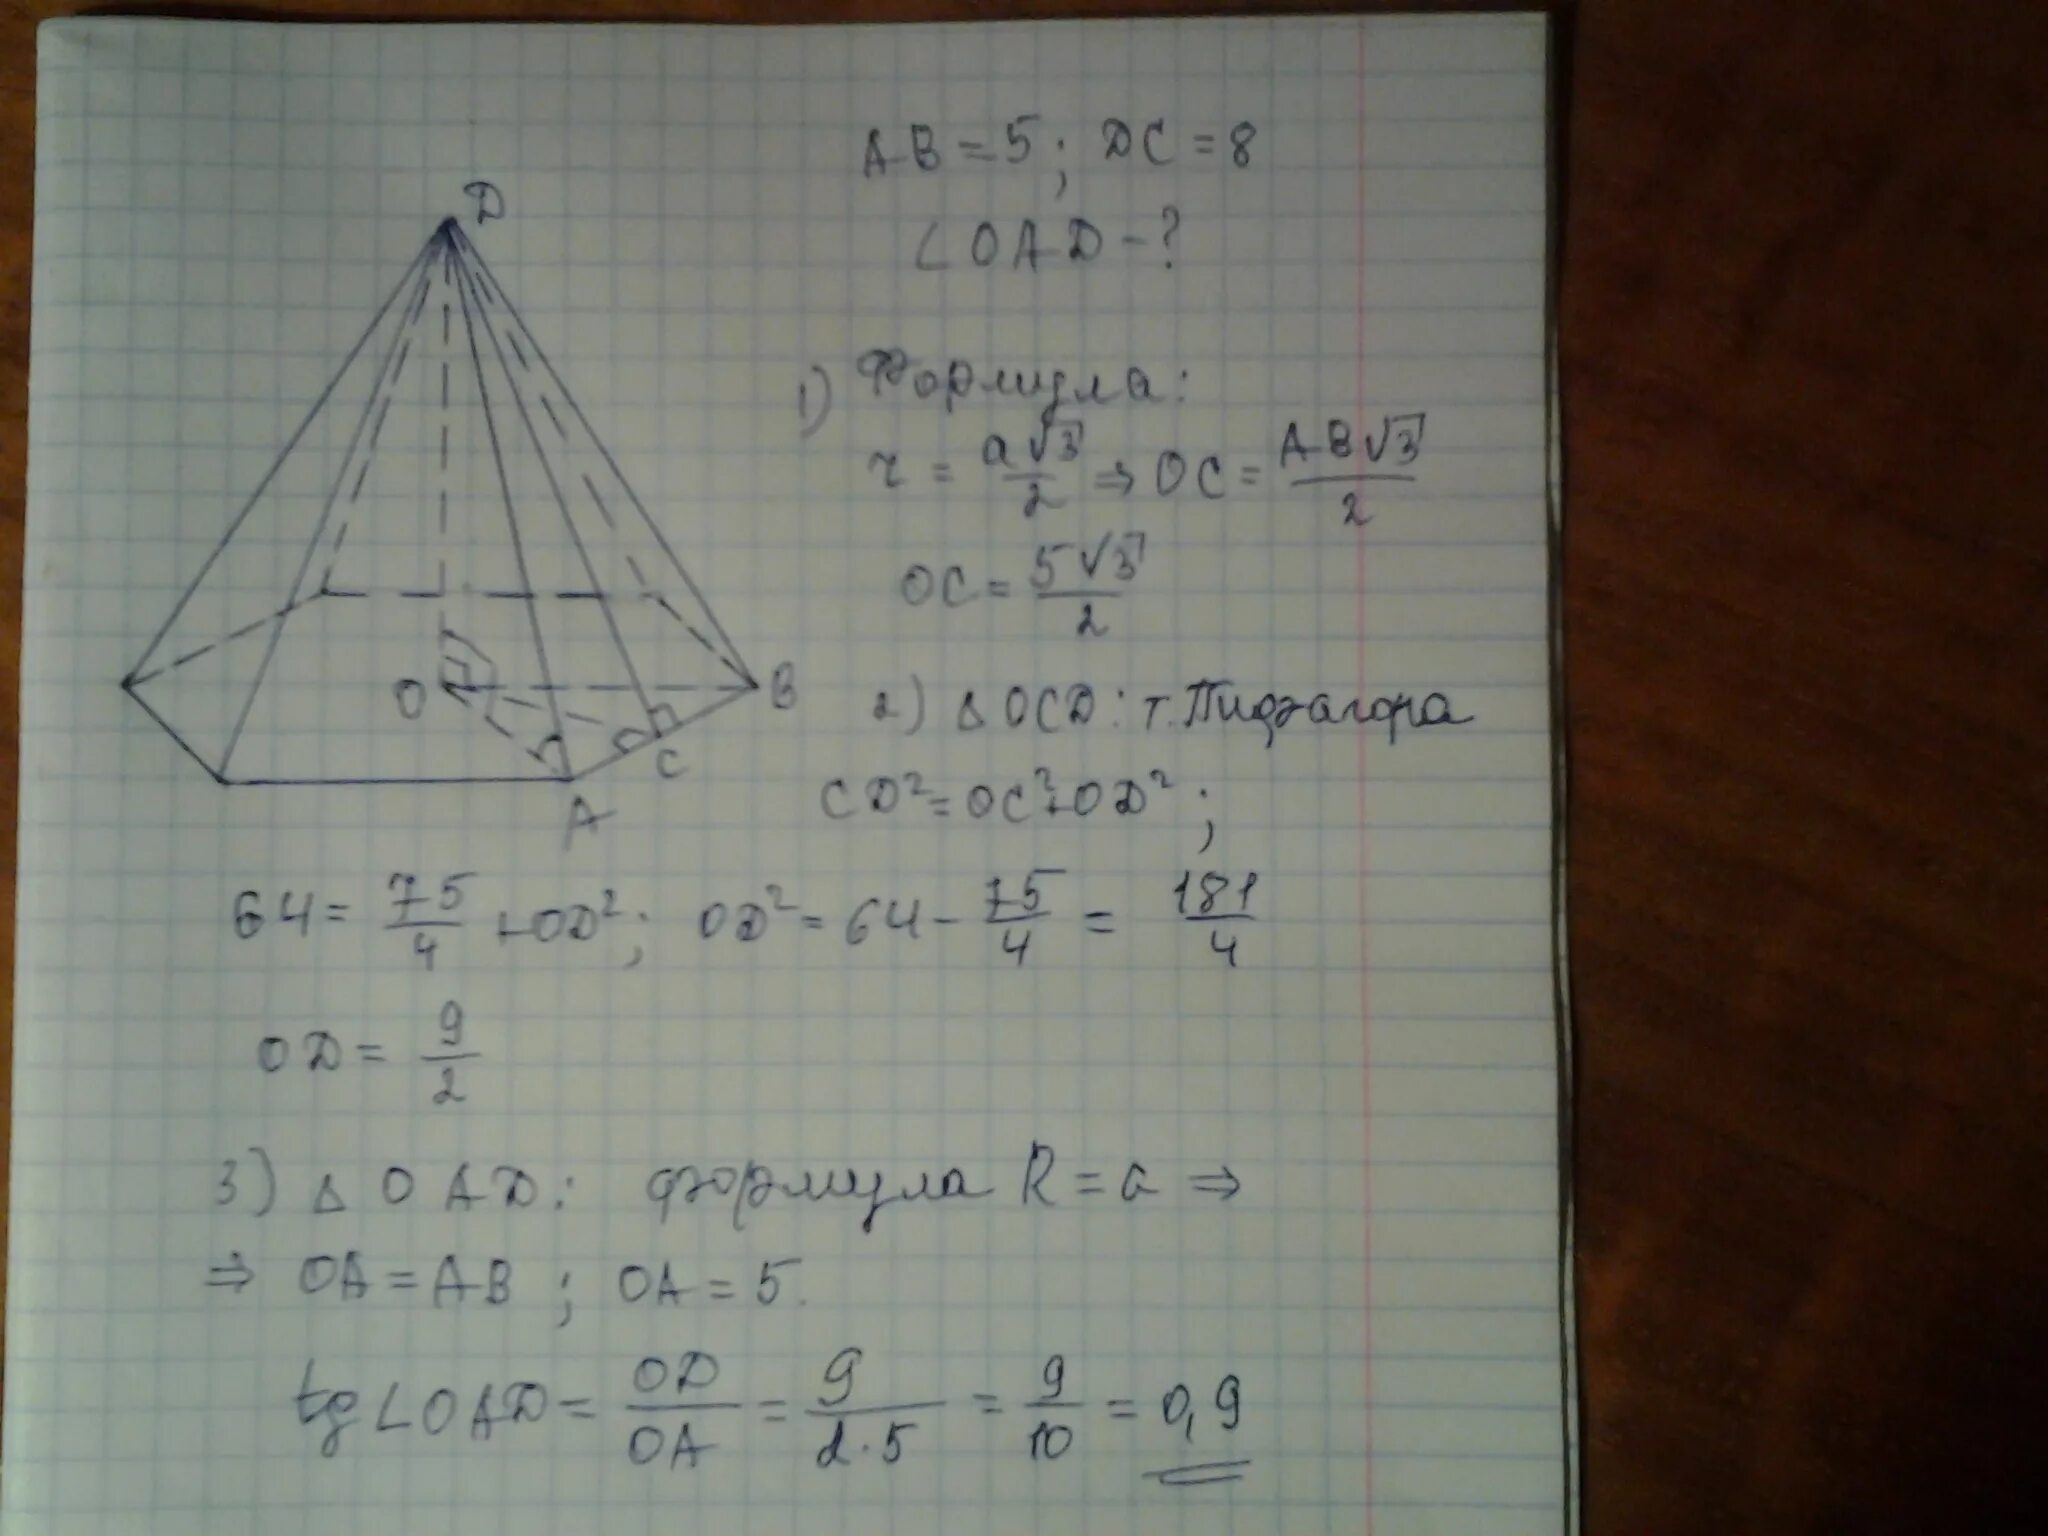 D
O
B
C
A
AB = 5 ; DC = 8
∠OAD - ?
1) Формула:
r = a√3/2 ⇒ OC = AB√3/2
OC = 5√3/2
2) Δ OCD: т. Пифагора
CD² = OC² + OD² ;
64 = 75/4 + OD² ; OD² = 64 - 75/4 = 181/4
OD = 9/2
3) Δ OAD: формула R = a ⇒
⇒ OA = AB ; OA = 5.
tg ∠OAD = OD/OA = 9/2·5 = 9/10 = 0,9